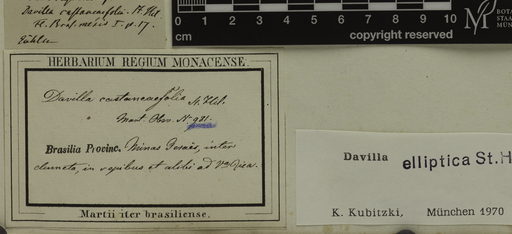 Davilla castaneaefolia. St. Hil.
Fl. Bras. merid I. p. 17.
0 1 2 3 4 5 6 7 8 9 10
cm
copyright reserved
BOTA
STAA
MÜN
HERBARIUM REGIUM MONACENSE.
Davilla castaneaefolia St. Hil.
Mart. Obs. N. 981.
Brasilia Provinc. Minas Geraës, inter
dumeta, in rupibus et alibi ad Va Rica.
Martii iter brasiliense.
Davilla elliptica St.H
K. Kubitzki, München 1970